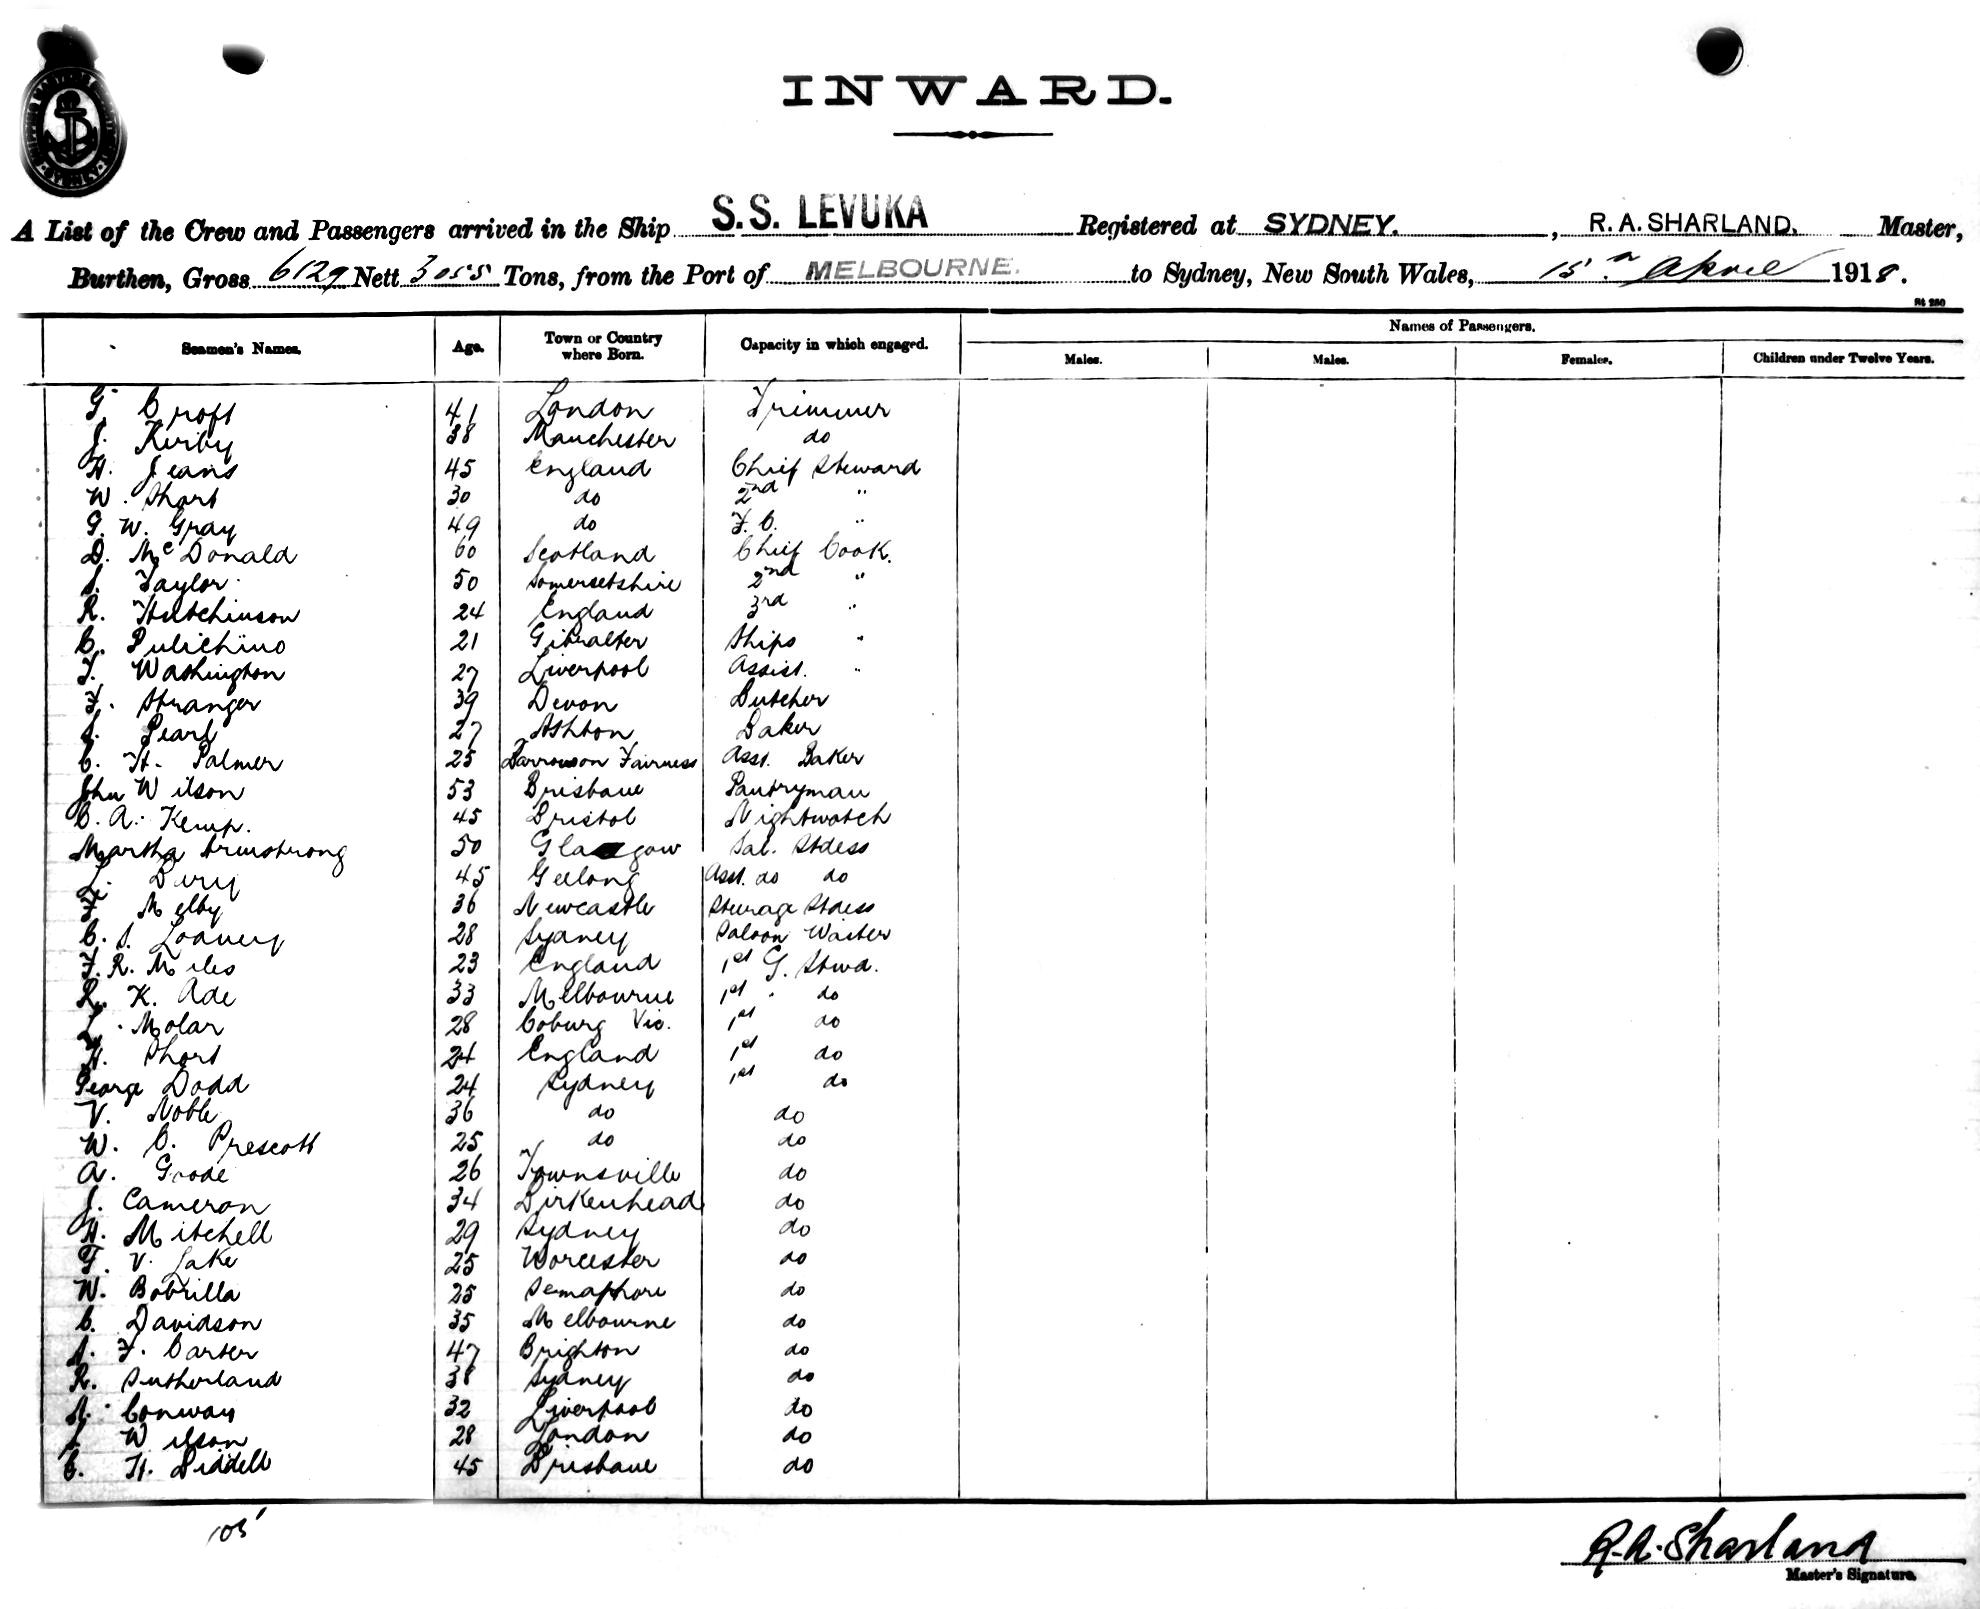 INWARD.
A List of the Crew and Passengers arrived in the Ship S.S. LEVUKA Registered at SYDNEY. , R.A. SHARLAND. Master,
Burthen, Gross 6129 Nett 3055 Tons, from the Port of MELBOURNE. to Sydney, New South Wales, 15th April 1918.
St 250
Seamen's Names. Age. Town or Country where Born. Capacity in which engaged. Names of Passengers.
Males. Males. Females. Children under Twelve Years.
G Croft 41 London Trimmer
J. Kirby 38 Manchester do
H. Jeans 45 England Chief Steward
W. Short 30 do 2nd "
G. W. Gray 49 do F. C. "
D. McDonald 60 Scotland Chief Cook.
S. Taylor 50 Somersetshire 2nd "
R. Hutchinson 24 England 3rd "
C. Pulichino 21 Gibralter Ships "
T. Washington 27 Liverpool Assist. "
F. Stranger 39 Devon Butcher
S. Pearl 27 Ashton Baker
C. H. Palmer 25 Barrowon Fairness Asst. Baker
John Wilson 53 Brisbane Pantryman
C. A. Kemp. 45 Bristol Nightwatch
Martha Armstrong 50 Glasgow Sal. Stdess
L. Bery 45 Geelong Asst. do do
F. Melby 36 Newcastle Steerage Stdess
C. S. Loaney 28 Sydney Saloon Waiter
F. R. Miles 23 England 1st G. Stwd.
R. K. Ade 33 Melbourne 1st " do
L. Molar 28 Coburg Vic. 1st do
H. Short 24 England 1st do
George Dodd 24 Sydney 1st do
V. Noble 36 do do
W. C. Prescott 25 do do
A. Goode 26 Townsville do
J. Cameron 34 Birkenhead do
H. Mitchell 29 Sydney do
F. V. Lake 25 Worcester do
W. Bobrilla 25 Semaphore do
C. Davidson 35 Melbourne do
S. F. Carter 47 Brighton do
R. Sutherland 38 Sydney do
A. Conway 32 Liverpool do
J Wilson 28 London do
C. H. Liddell 45 Brisbane do
105
R.A. Sharland
Master's Signature.